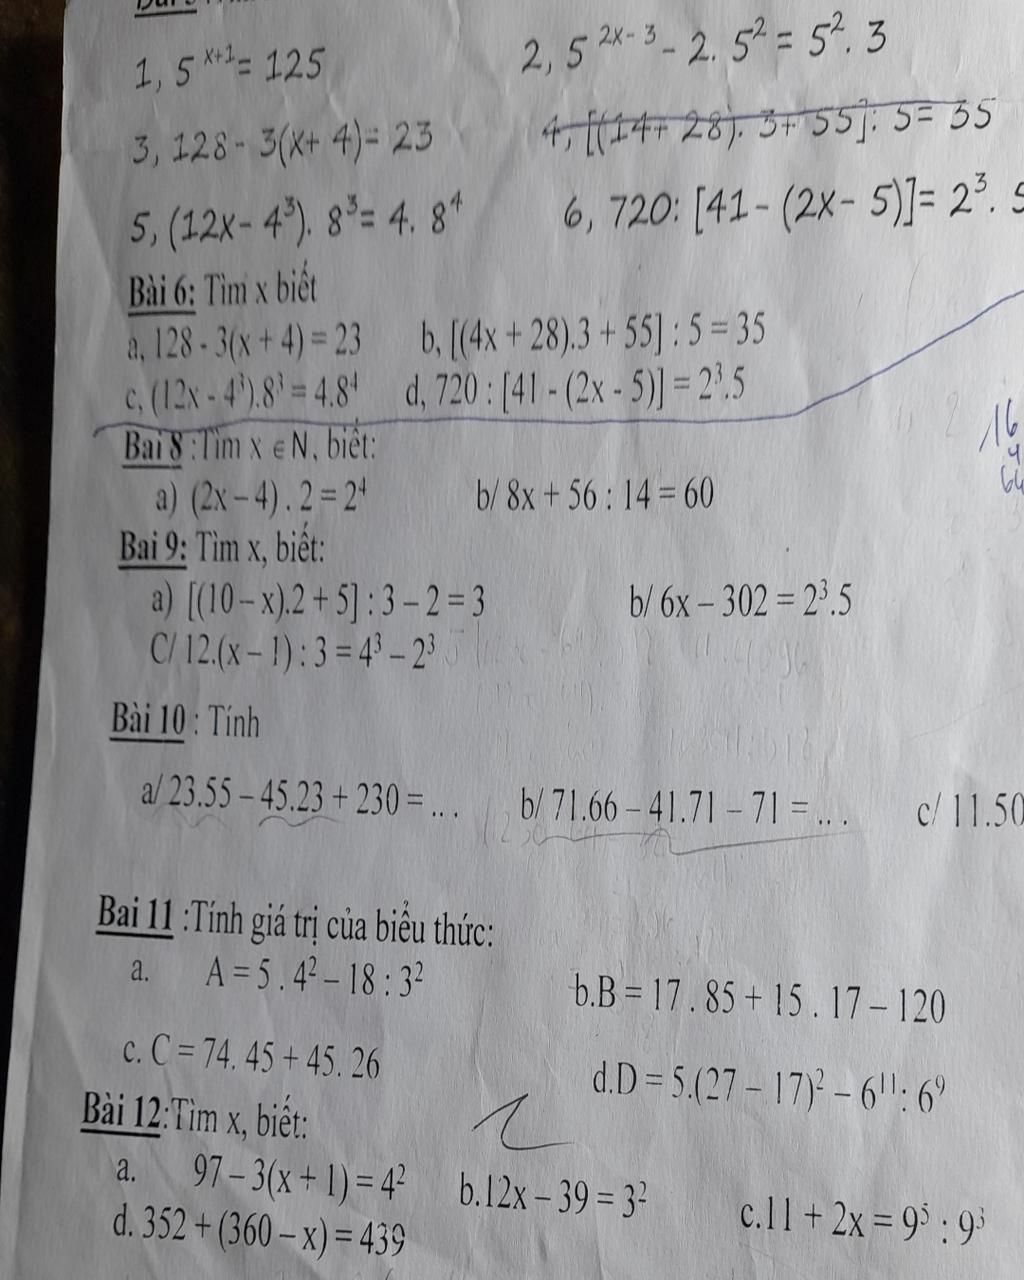 1, 5^{x+1} = 125 2, 5^{2x-3} - 2. 5² = 5². 3
3, 128 - 3(x+ 4)= 23 4, [(14+ 28). 3+ 55]: 5= 35
5, (12x- 4³). 8³= 4. 8⁴ 6, 720: [41- (2x- 5)]= 2³. 5
Bài 6: Tìm x biết
a, 128 - 3(x + 4) = 23 b, [(4x + 28).3 + 55] : 5 = 35
c, (12x - 4³).8³ = 4.8⁴ d, 720 : [41 - (2x - 5)] = 2³.5
16
4
64
Bai 8 :Tìm x ∈ N, biết:
a) (2x – 4) . 2 = 2⁴ b/ 8x + 56 : 14 = 60
Bai 9: Tìm x, biết:
a) [(10 – x).2 + 5] : 3 – 2 = 3 b/ 6x – 302 = 2³.5
C/ 12.(x – 1) : 3 = 4³ – 2³
Bài 10 : Tính
a/ 23.55 – 45.23 + 230 = ... b/ 71.66 – 41.71 – 71 = ... c/ 11.50
Bai 11 :Tính giá trị của biểu thức:
a. A = 5 . 4² – 18 : 3² b.B = 17 . 85 + 15 . 17 – 120
c. C = 74. 45 + 45. 26 d.D = 5.(27 – 17)² – 6¹¹: 6⁹
Bài 12:Tìm x, biết:
a. 97 – 3(x + 1) = 4² b.12x – 39 = 3² c.11 + 2x = 9⁵ : 9³
d. 352 + (360 – x) = 439